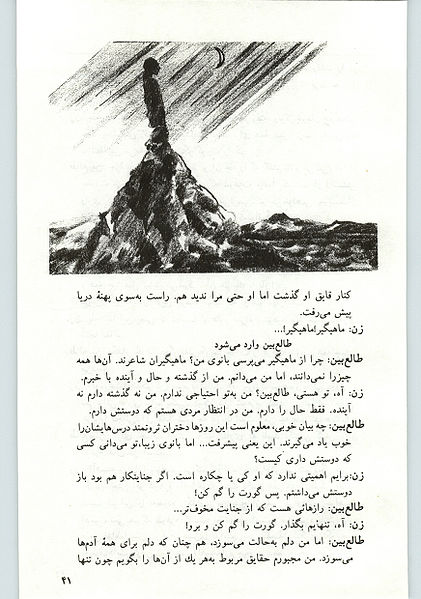 کنار قایق او گذشت اما او حتی مرا ندید هم. راست به‌سوی پهنهٔ دریا
پیش می‌رفت.
زن: ماهیگیر!ماهیگیر!...
طالع‌بین وارد می‌شود
طالع‌بین: چرا از ماهیگیر می‌پرسی بانوی من؟ ماهیگیران شاعرند. آن‌ها همه
چیزرا نمی‌دانند، اما من می‌دانم. من از گذشته و حال و آینده با خبرم.
زن: آه، تو هستی، طالع‌بین؟ من به‌تو احتیاجی ندارم. من نه گذشته دارم نه
آینده. فقط حال را دارم. من در انتظار مردی هستم که دوستش دارم.
طالع‌بین: چه بیان خوبی، معلوم است این روزها دختران ثروتمند درس‌هایشان‌را
خوب یاد می‌گیرند. این یعنی پیشرفت... اما بانوی زیبا،تو می‌دانی کسی
که دوستش داری کیست؟
زن:برایم اهمیتی ندارد که او کی یا چکاره است. اگر جنایتکار هم بود باز
دوستش می‌داشتم. پس گورت را گم کن!
طالع‌بین: رازهائی هست که از جنایت مخوف‌تر...
زن: آه، تنهایم بگذار. گورت را گم کن و برو!
طالع‌بین: اما من دلم به‌حالت می‌سوزد، هم چنان که دلم برای همهٔ آدم‌ها
می‌سوزد. من مجبورم حقایق مربوط به‌هر یك از آن‌ها را بگویم چون تنها
۴۱